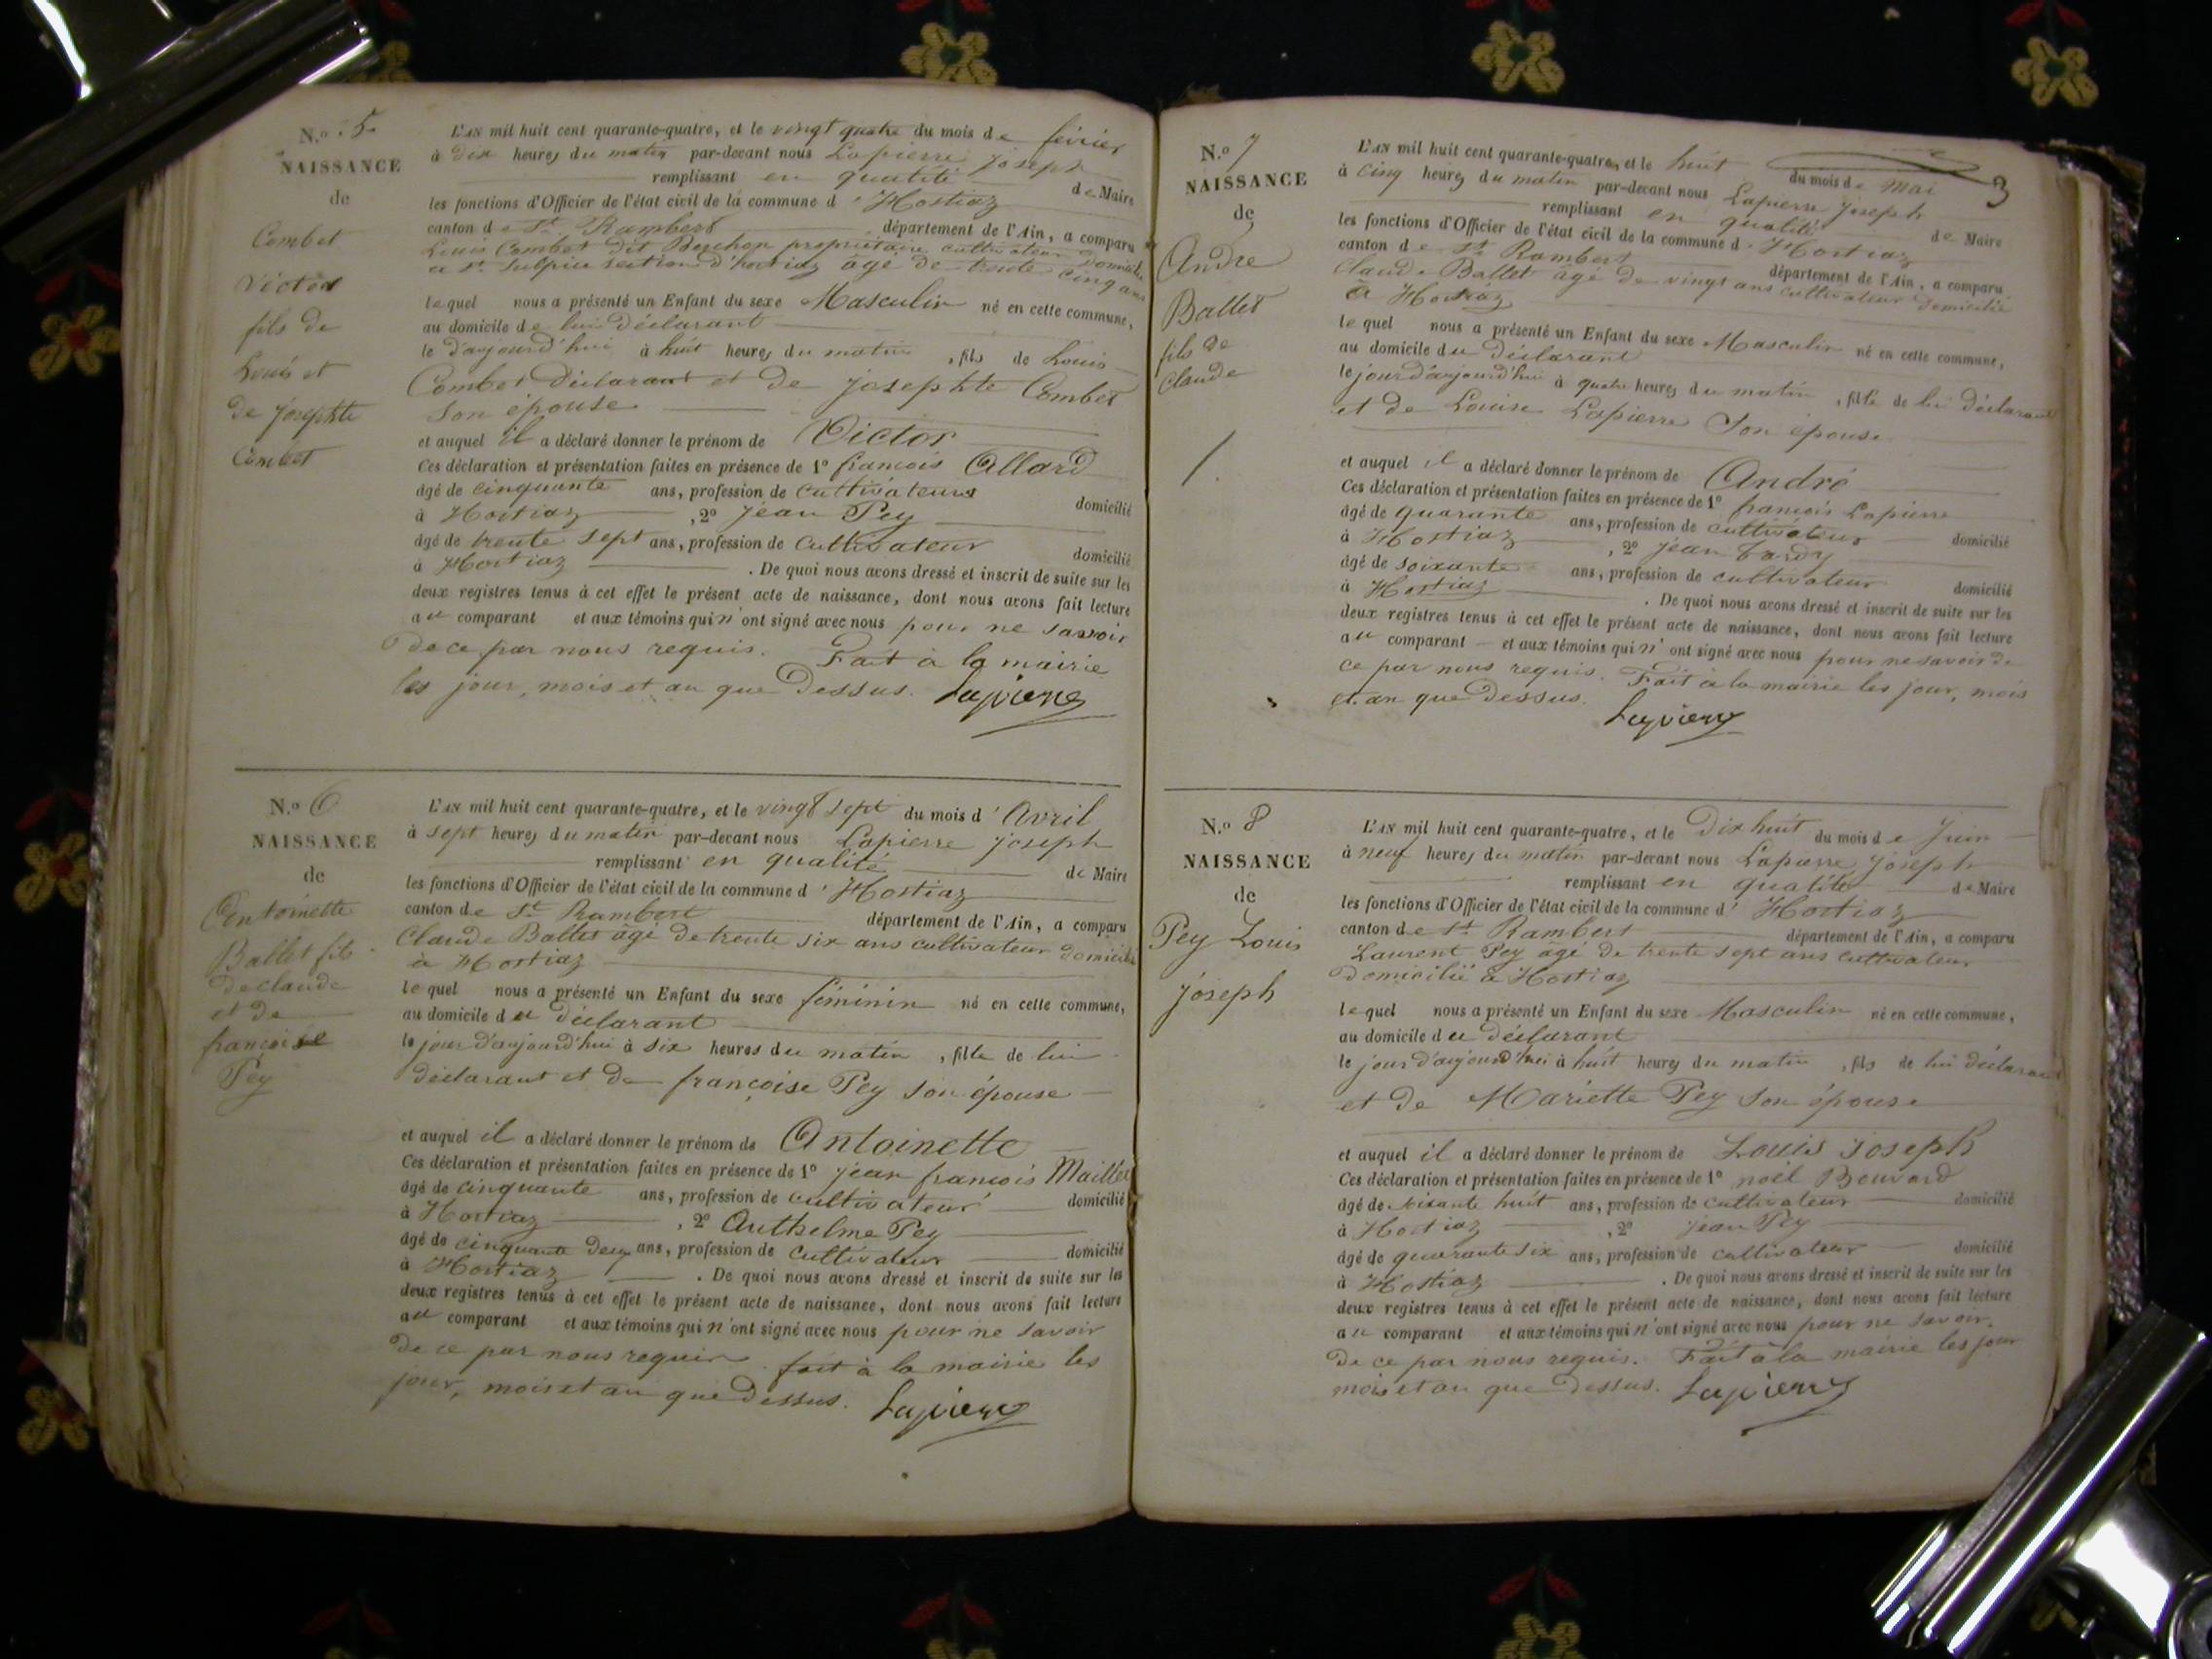 N.o 5
NAISSANCE
de
Combet
Victor
fils de
Louis et
de josephte
Combet
L'AN mil huit cent quarante-quatre, et le vingt quatre du mois de février
à dix heures du matin par-devant nous Lapierre joseph
remplissant en qualité de Maire
les fonctions d'Officier de l'état civil de la commune d'Hostiaz
canton de St Rambert département de l'Ain, a comparu
Louis Combet dit Berchon propriétaire cultivateur domicilié
à St Sulpice section d'hostiaz âgé de trente cinq ans
lequel nous a présenté un Enfant du sexe Masculin né en cette commune,
au domicile de lui déclarant
le d'aujourd'hui à huit heures du matin, fils de Louis
Combet déclarant et de josephte Combet
son épouse
et auquel il a déclaré donner le prénom de Victor
Ces déclaration et présentation faites en présence de 1o francois Allard
âgé de cinquante ans, profession de cultivateurs domicilié
à Hostiaz, 2o jean Pey
âgé de trente sept ans, profession de cultivateur domicilié
à Hostiaz. De quoi nous avons dressé et inscrit de suite sur les
deux registres tenus à cet effet le présent acte de naissance, dont nous avons fait lecture
au comparant et aux témoins qui n'ont signé avec nous pour ne savoir
de ce par nous requis. Fait à la mairie
les jour, mois et an que dessus. Lapierre
N.o 6
NAISSANCE
de
Antoinette
Ballet fils
de claude
et de
francoise
Pey
L'AN mil huit cent quarante-quatre, et le vingt sept du mois d'Avril
à sept heures du matin par-devant nous Lapierre joseph
remplissant en qualité de Maire
les fonctions d'Officier de l'état civil de la commune d'Hostiaz
canton de St Rambert département de l'Ain, a comparu
Claude Ballet âgé de trente six ans cultivateur domicilié
à Hostiaz
lequel nous a présenté un Enfant du sexe féminin né en cette commune,
au domicile du déclarant
le jour d'aujourd'hui à six heures du matin, fille de lui
déclarant et de françoise Pey son épouse
et auquel il a déclaré donner le prénom de Antoinette
Ces déclaration et présentation faites en présence de 1o jean francois Maillet
âgé de cinquante ans, profession de cultivateur domicilié
à Hostiaz, 2o Anthelme Pey
âgé de cinquante deux ans, profession de cultivateur domicilié
à Hostiaz. De quoi nous avons dressé et inscrit de suite sur les
deux registres tenus à cet effet le présent acte de naissance, dont nous avons fait lecture
au comparant et aux témoins qui n'ont signé avec nous pour ne savoir
de ce par nous requis. fait à la mairie les
jour, mois et an que dessus. Lapierre
3
N.o 7
NAISSANCE
de
André
Ballet
fils de
claude
1.
L'AN mil huit cent quarante-quatre, et le huit du mois de Mai
à cinq heures du matin par-devant nous Lapierre joseph
remplissant en qualité de Maire
les fonctions d'Officier de l'état civil de la commune d'Hostiaz
canton de St Rambert département de l'Ain, a comparu
Claude Ballet âgé de vingt ans cultivateur domicilié
à Hostiaz
lequel nous a présenté un Enfant du sexe Masculin né en cette commune,
au domicile du déclarant
le jour d'aujourd'hui à quatre heures du matin, fils de lui déclarant
et de Louise Lapierre Son épouse
et auquel il a déclaré donner le prénom de André
Ces déclaration et présentation faites en présence de 1o francois Lapierre
âgé de quarante ans, profession de cultivateur domicilié
à Hostiaz, 2o jean Tardy
âgé de soixante ans, profession de cultivateur domicilié
à Hostiaz. De quoi nous avons dressé et inscrit de suite sur les
deux registres tenus à cet effet le présent acte de naissance, dont nous avons fait lecture
au comparant et aux témoins qui n'ont signé avec nous pour ne savoir de
ce par nous requis. Fait à la mairie les jour, mois
et an que dessus. Lapierre
N.o 8
NAISSANCE
de
Pey Louis
joseph
L'AN mil huit cent quarante-quatre, et le Dix huit du mois de Juin
à neuf heures du matin par-devant nous Lapierre joseph
remplissant en qualité de Maire
les fonctions d'Officier de l'état civil de la commune d'Hostiaz
canton de St Rambert département de l'Ain, a comparu
Laurent Pey âgé de trente sept ans cultivateur
domicilié à Hostiaz
lequel nous a présenté un Enfant du sexe Masculin né en cette commune,
au domicile du déclarant
le jour d'aujourd'hui à huit heures du matin, fils de lui déclarant
et de Mariette Pey son épouse
et auquel il a déclaré donner le prénom de Louis Joseph
Ces déclaration et présentation faites en présence de 1o noël Bouvard
âgé de soixante huit ans, profession de cultivateur domicilié
à Hostiaz, 2o jean Pey
âgé de quarante six ans, profession de cultivateur domicilié
à Hostiaz. De quoi nous avons dressé et inscrit de suite sur les
deux registres tenus à cet effet le présent acte de naissance, dont nous avons fait lecture
au comparant et aux témoins qui n'ont signé avec nous pour ne savoir
de ce par nous requis. Fait à la mairie les jour
mois et an que dessus. Lapierre